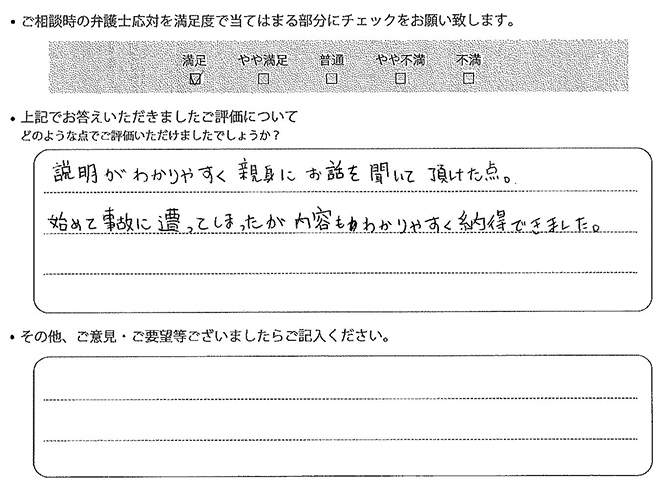 • ご相談時の弁護士応対を満足度で当てはまる部分にチェックをお願い致します。
満足 やや満足 普通 やや不満 不満
☑ ☐ ☐ ☐ ☐
• 上記でお答えいただきましたご評価について
どのような点でご評価いただけましたでしょうか？
説明がわかりやすく親身にお話を聞いて頂けた点。
始めて事故に遭ってしまったが内容もわかりやすく納得できました。
• その他、ご意見・ご要望等ございましたらご記入ください。